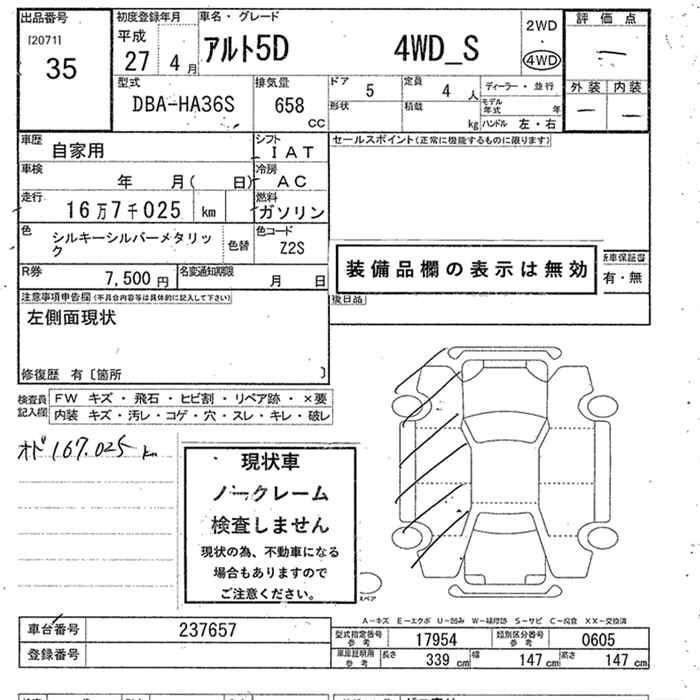 出品番号
[2071]
35
初度登録年月
平成
27 4月
車名・グレード
アルト5D 4WD_S
2WD
・
4WD
評価点
—
外装 内装
— —
型式
DBA-HA36S
排気量
658
CC
ドア
5
定員
4人
ディーラー・並行
形状
積載
kg
モデル年式 年
ハンドル 左・右
車歴
自家用
シフト
IAT
セールスポイント(正常に機能するものに限ります)
車検
年 月( 日)
冷房
AC
走行
16万7千025 km
燃料
ガソリン
色
シルキーシルバーメタリック
色替
色コード
Z2S
装備品欄の表示は無効
新車保証書
有・無
R券
7,500円
名変通知期限
月 日
後日品
注意事項申告欄(不具合内容等は具体的に記入して下さい)
左側面現状
修復歴 有〔箇所 〕
検査員記入欄
FW キズ・飛石・ヒビ割・リペア跡・×要
内装 キズ・汚レ・コゲ・穴・スレ・キレ・破レ
オド167.025km
現状車
ノークレーム
検査しません
現状の為、不動車になる
場合もありますので
ご注意ください。
スペア
A-キズ E-エクボ U-凹み W-補修跡 S-サビ C-腐食 XX-交換済
車台番号
237657
登録番号
型式指定番号
参考
17954
類別区分番号
参考
0605
車庫証明用
参考
長さ
339 cm
幅
147 cm
高さ
147 cm